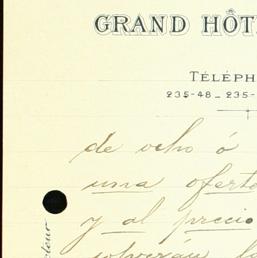 GRAND HÔT
TÉLÉPH
235-48 _ 235-
de ocho ó
una oferte
y al precio
solverán la